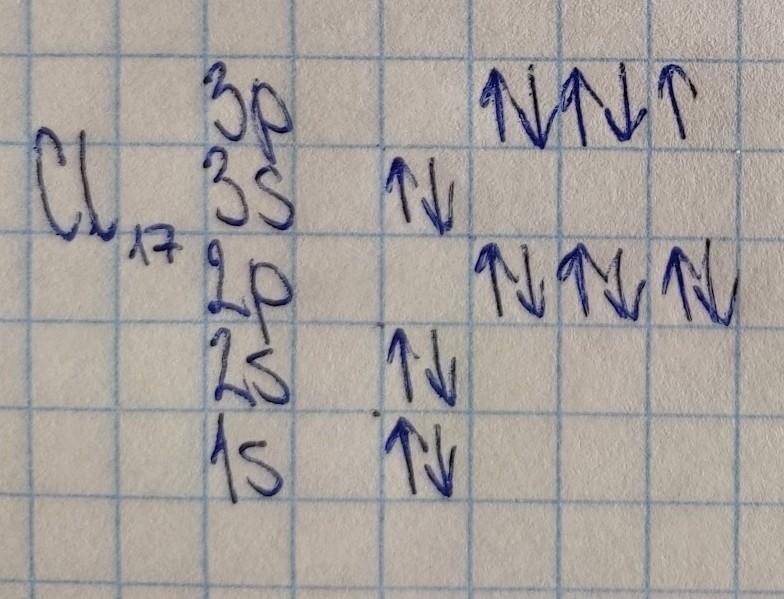 3p ↑↓ ↑↓ ↑
Cl 3s ↑↓
17
2p ↑↓ ↑↓ ↑↓
2s ↑↓
1s ↑↓